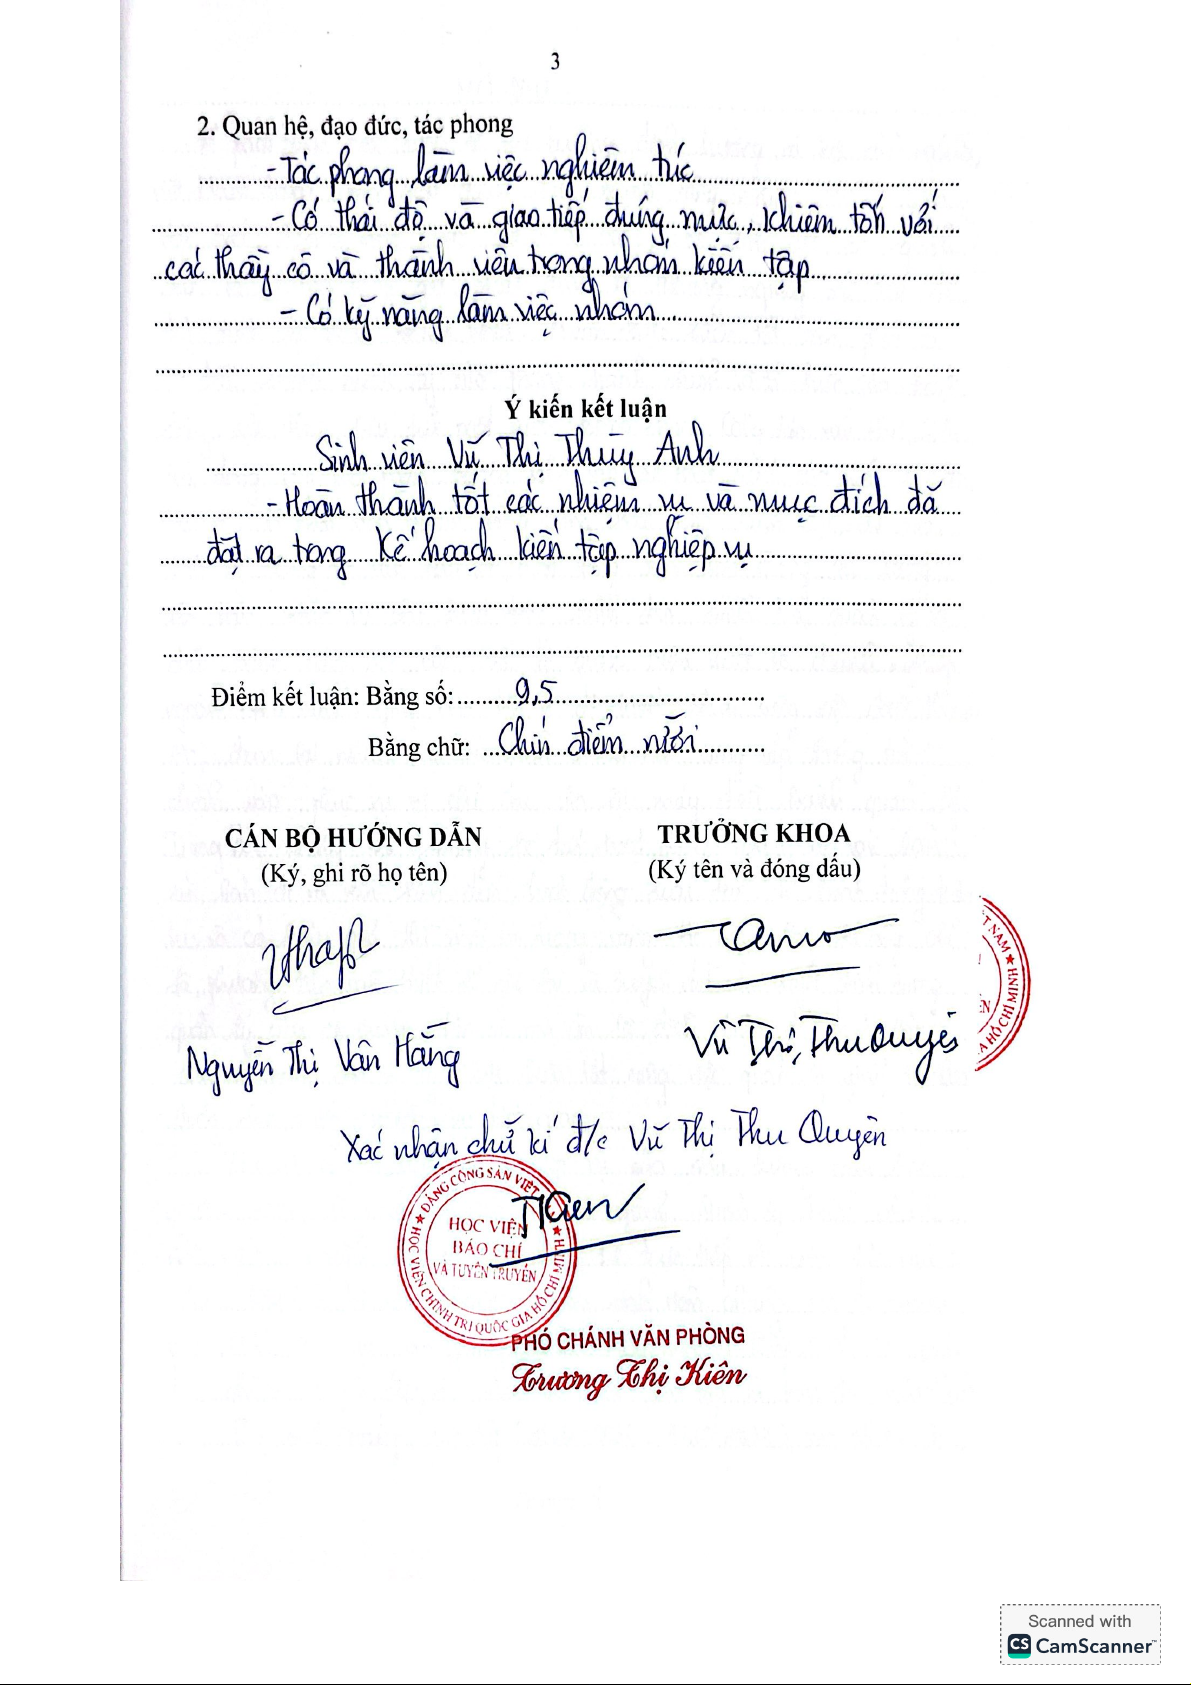 3
2. Quan hệ, đạo đức, tác phong
- Tác phong làm việc nghiêm túc
- Có thái độ và giao tiếp đúng mực, khiêm tốn với
các thầy cô và thành viên trong nhóm kiến tập
- Có kỹ năng làm việc nhóm
Ý kiến kết luận
Sinh viên Vũ Thị Thùy Anh
- Hoàn thành tốt các nhiệm vụ và mục đích đã
đặt ra trong Kế hoạch kiến tập nghiệp vụ
Điểm kết luận: Bằng số: 9,5
Bằng chữ: Chín điểm rưỡi
CÁN BỘ HƯỚNG DẪN
(Ký, ghi rõ họ tên)
TRƯỞNG KHOA
(Ký tên và đóng dấu)
T NAM ★
A HỒ CHÍ MINH
Nguyễn Thị Vân Hằng
Vũ Thị Thu Quyên
Xác nhận chữ kí đ/c Vũ Thị Thu Quyên
ĐẢNG CỘNG SẢN VIỆT
HỌC VIỆN CHÍNH TRỊ QUỐC GIA HỒ CHÍ MINH
HỌC VIỆN
BÁO CHÍ
VÀ TUYÊN TRUYỀN
PHÓ CHÁNH VĂN PHÒNG
Trương Thị Kiên
Scanned with
CS CamScanner